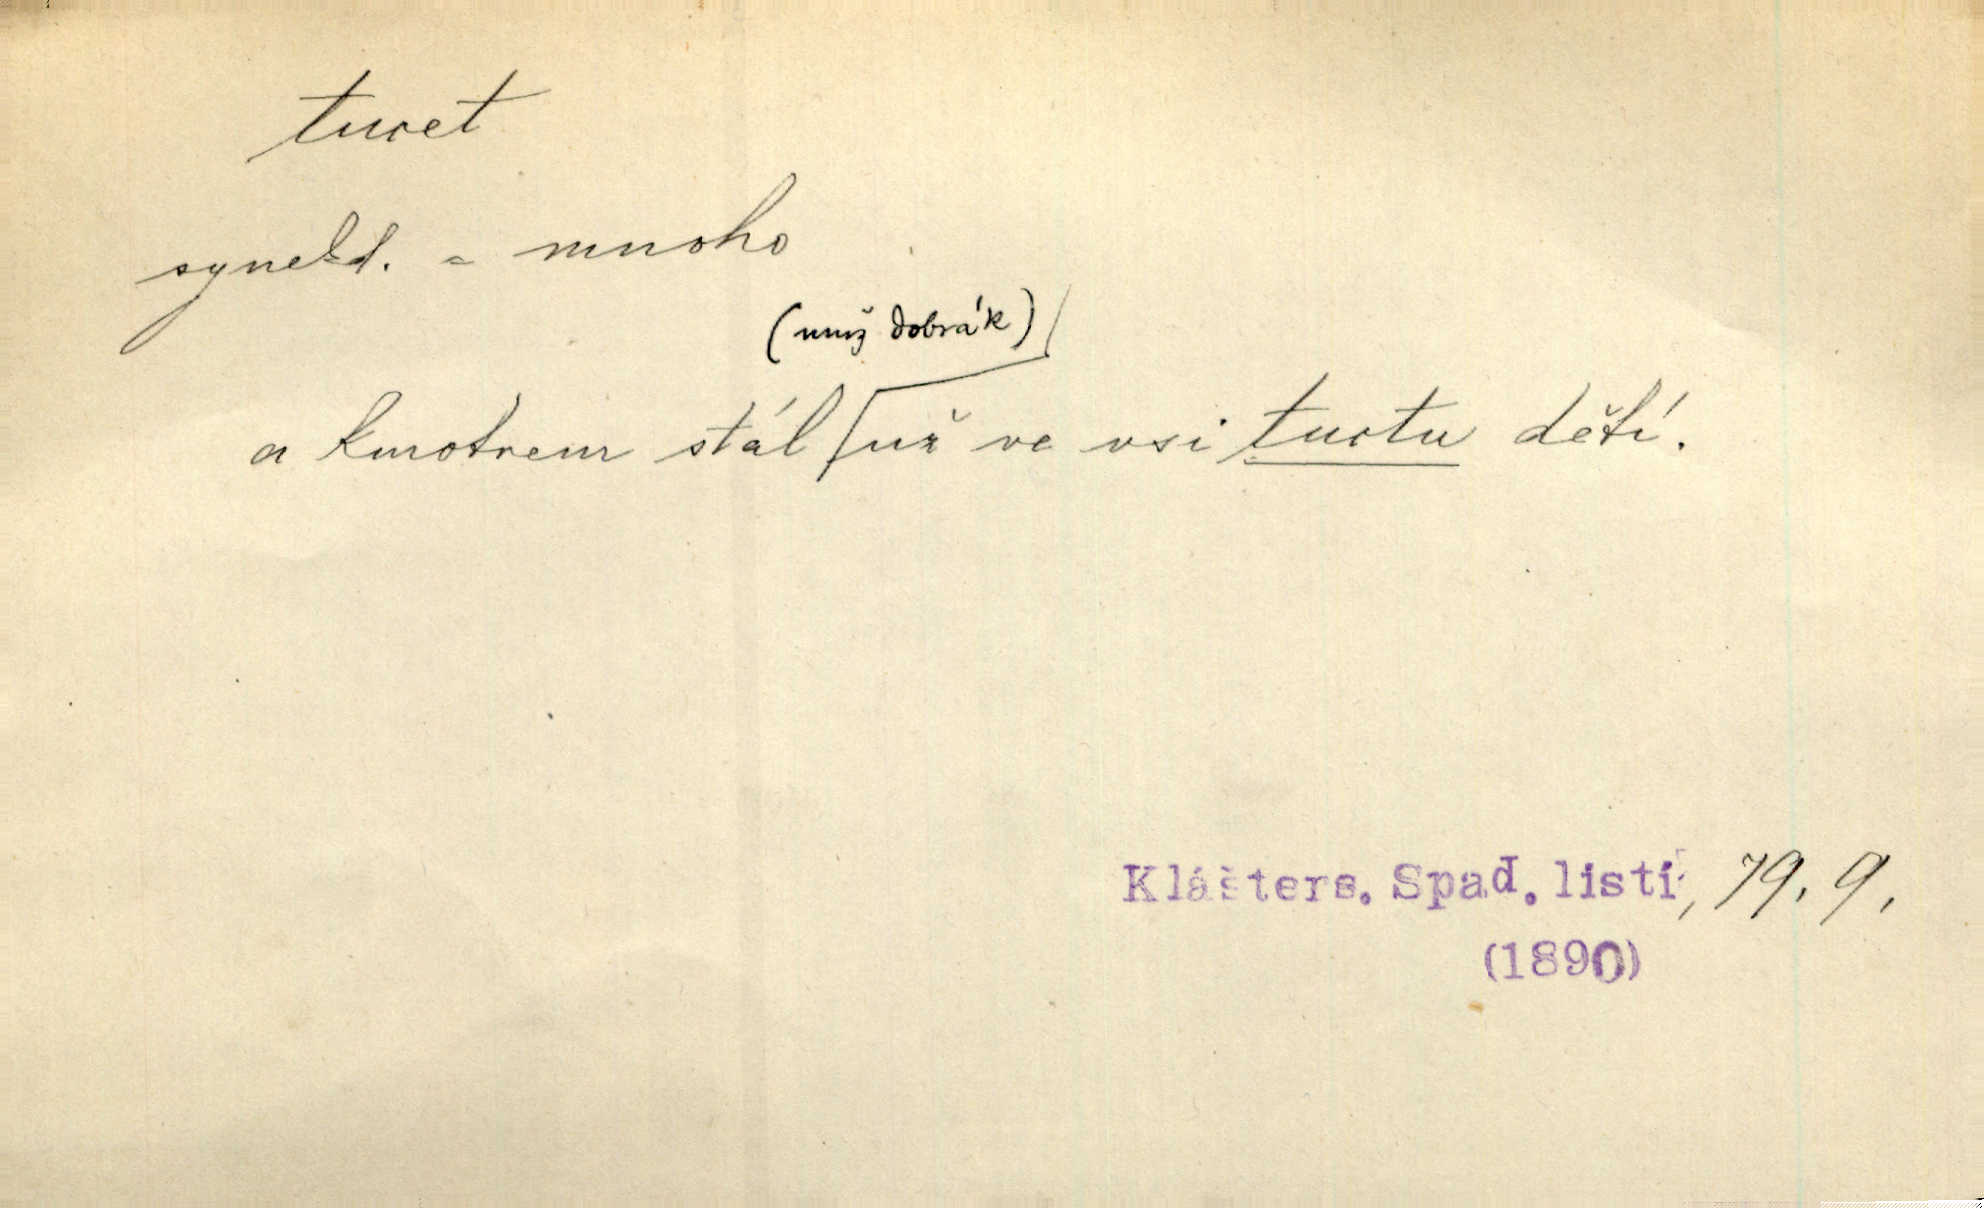 tucet
synekd. = mnoho
(muž dobrák)
a kmotrem stál už ve vsi tuctu dětí.
Klášters. Spad. listí, 79. 9.
(1890)